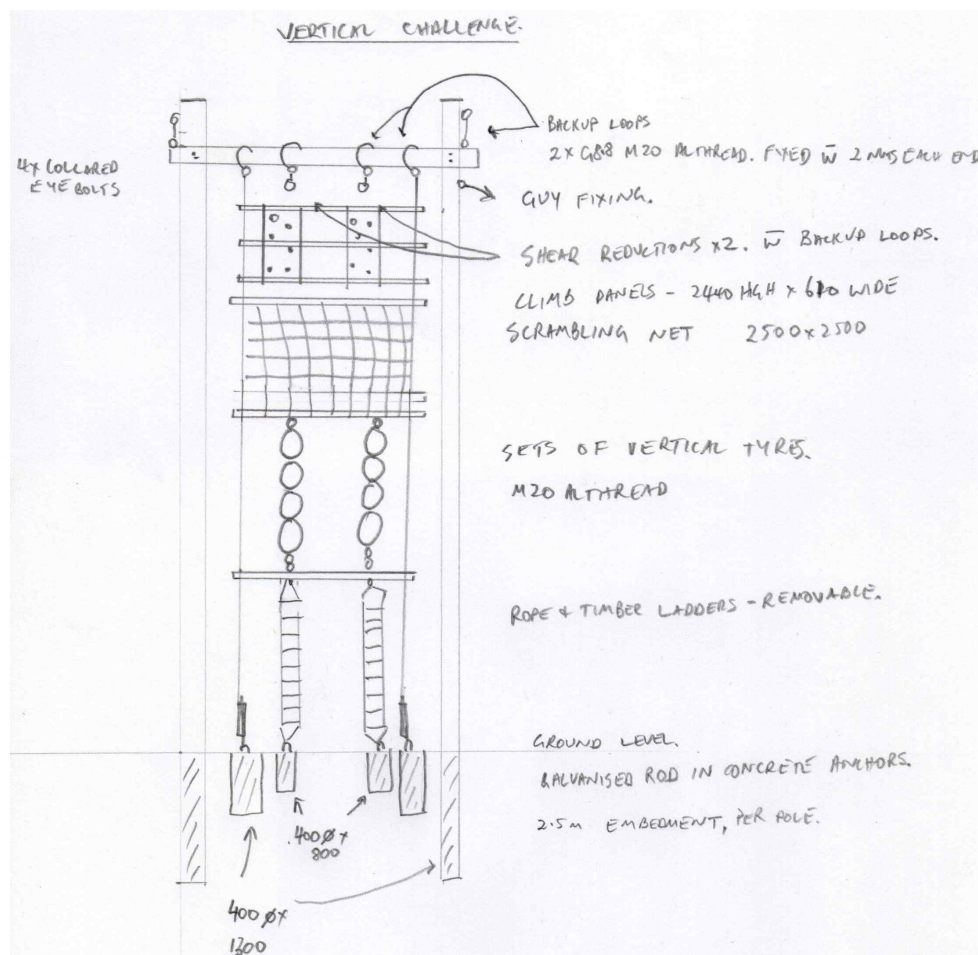 VERTICAL CHALLENGE.
4x COLLARED
EYE BOLTS
BACKUP LOOPS
2 x G8.8 M20 ALTHREAD. FIXED W̄ 2 NUTS EACH END
GUY FIXING.
SHEAR REDUCTIONS x2. W̄ BACKUP LOOPS.
CLIMB PANELS - 2440 HGH x 610 WIDE
SCRAMBLING NET 2500x2500
SETS OF VERTICAL TYRES.
M20 ALTHREAD
ROPE & TIMBER LADDERS - REMOVABLE.
GROUND LEVEL.
GALVANISED ROD IN CONCRETE ANCHORS.
2.5m EMBEDMENT, PER POLE.
400 Ø x
800
400 Ø x
1200